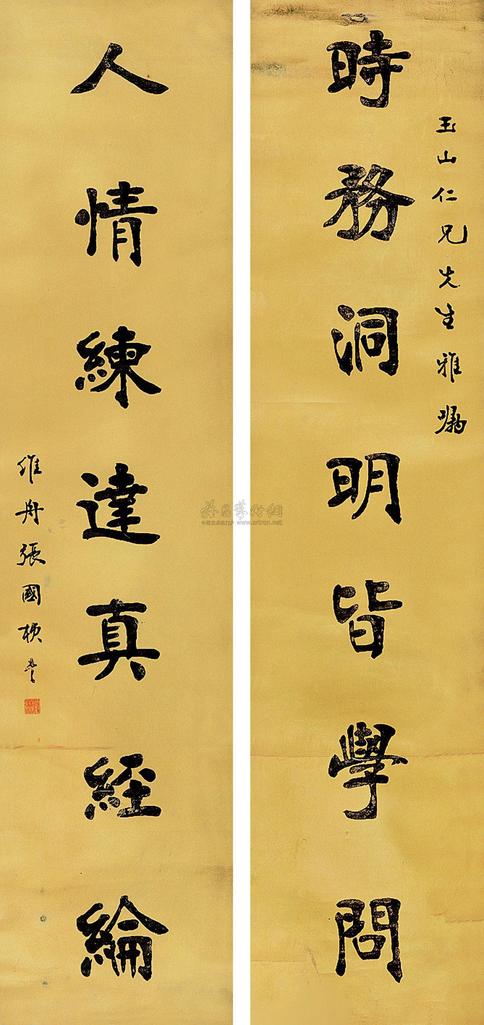 玉山仁兄先生雅屬
時務洞明皆學問
人情練達真經綸
維舟張國楨